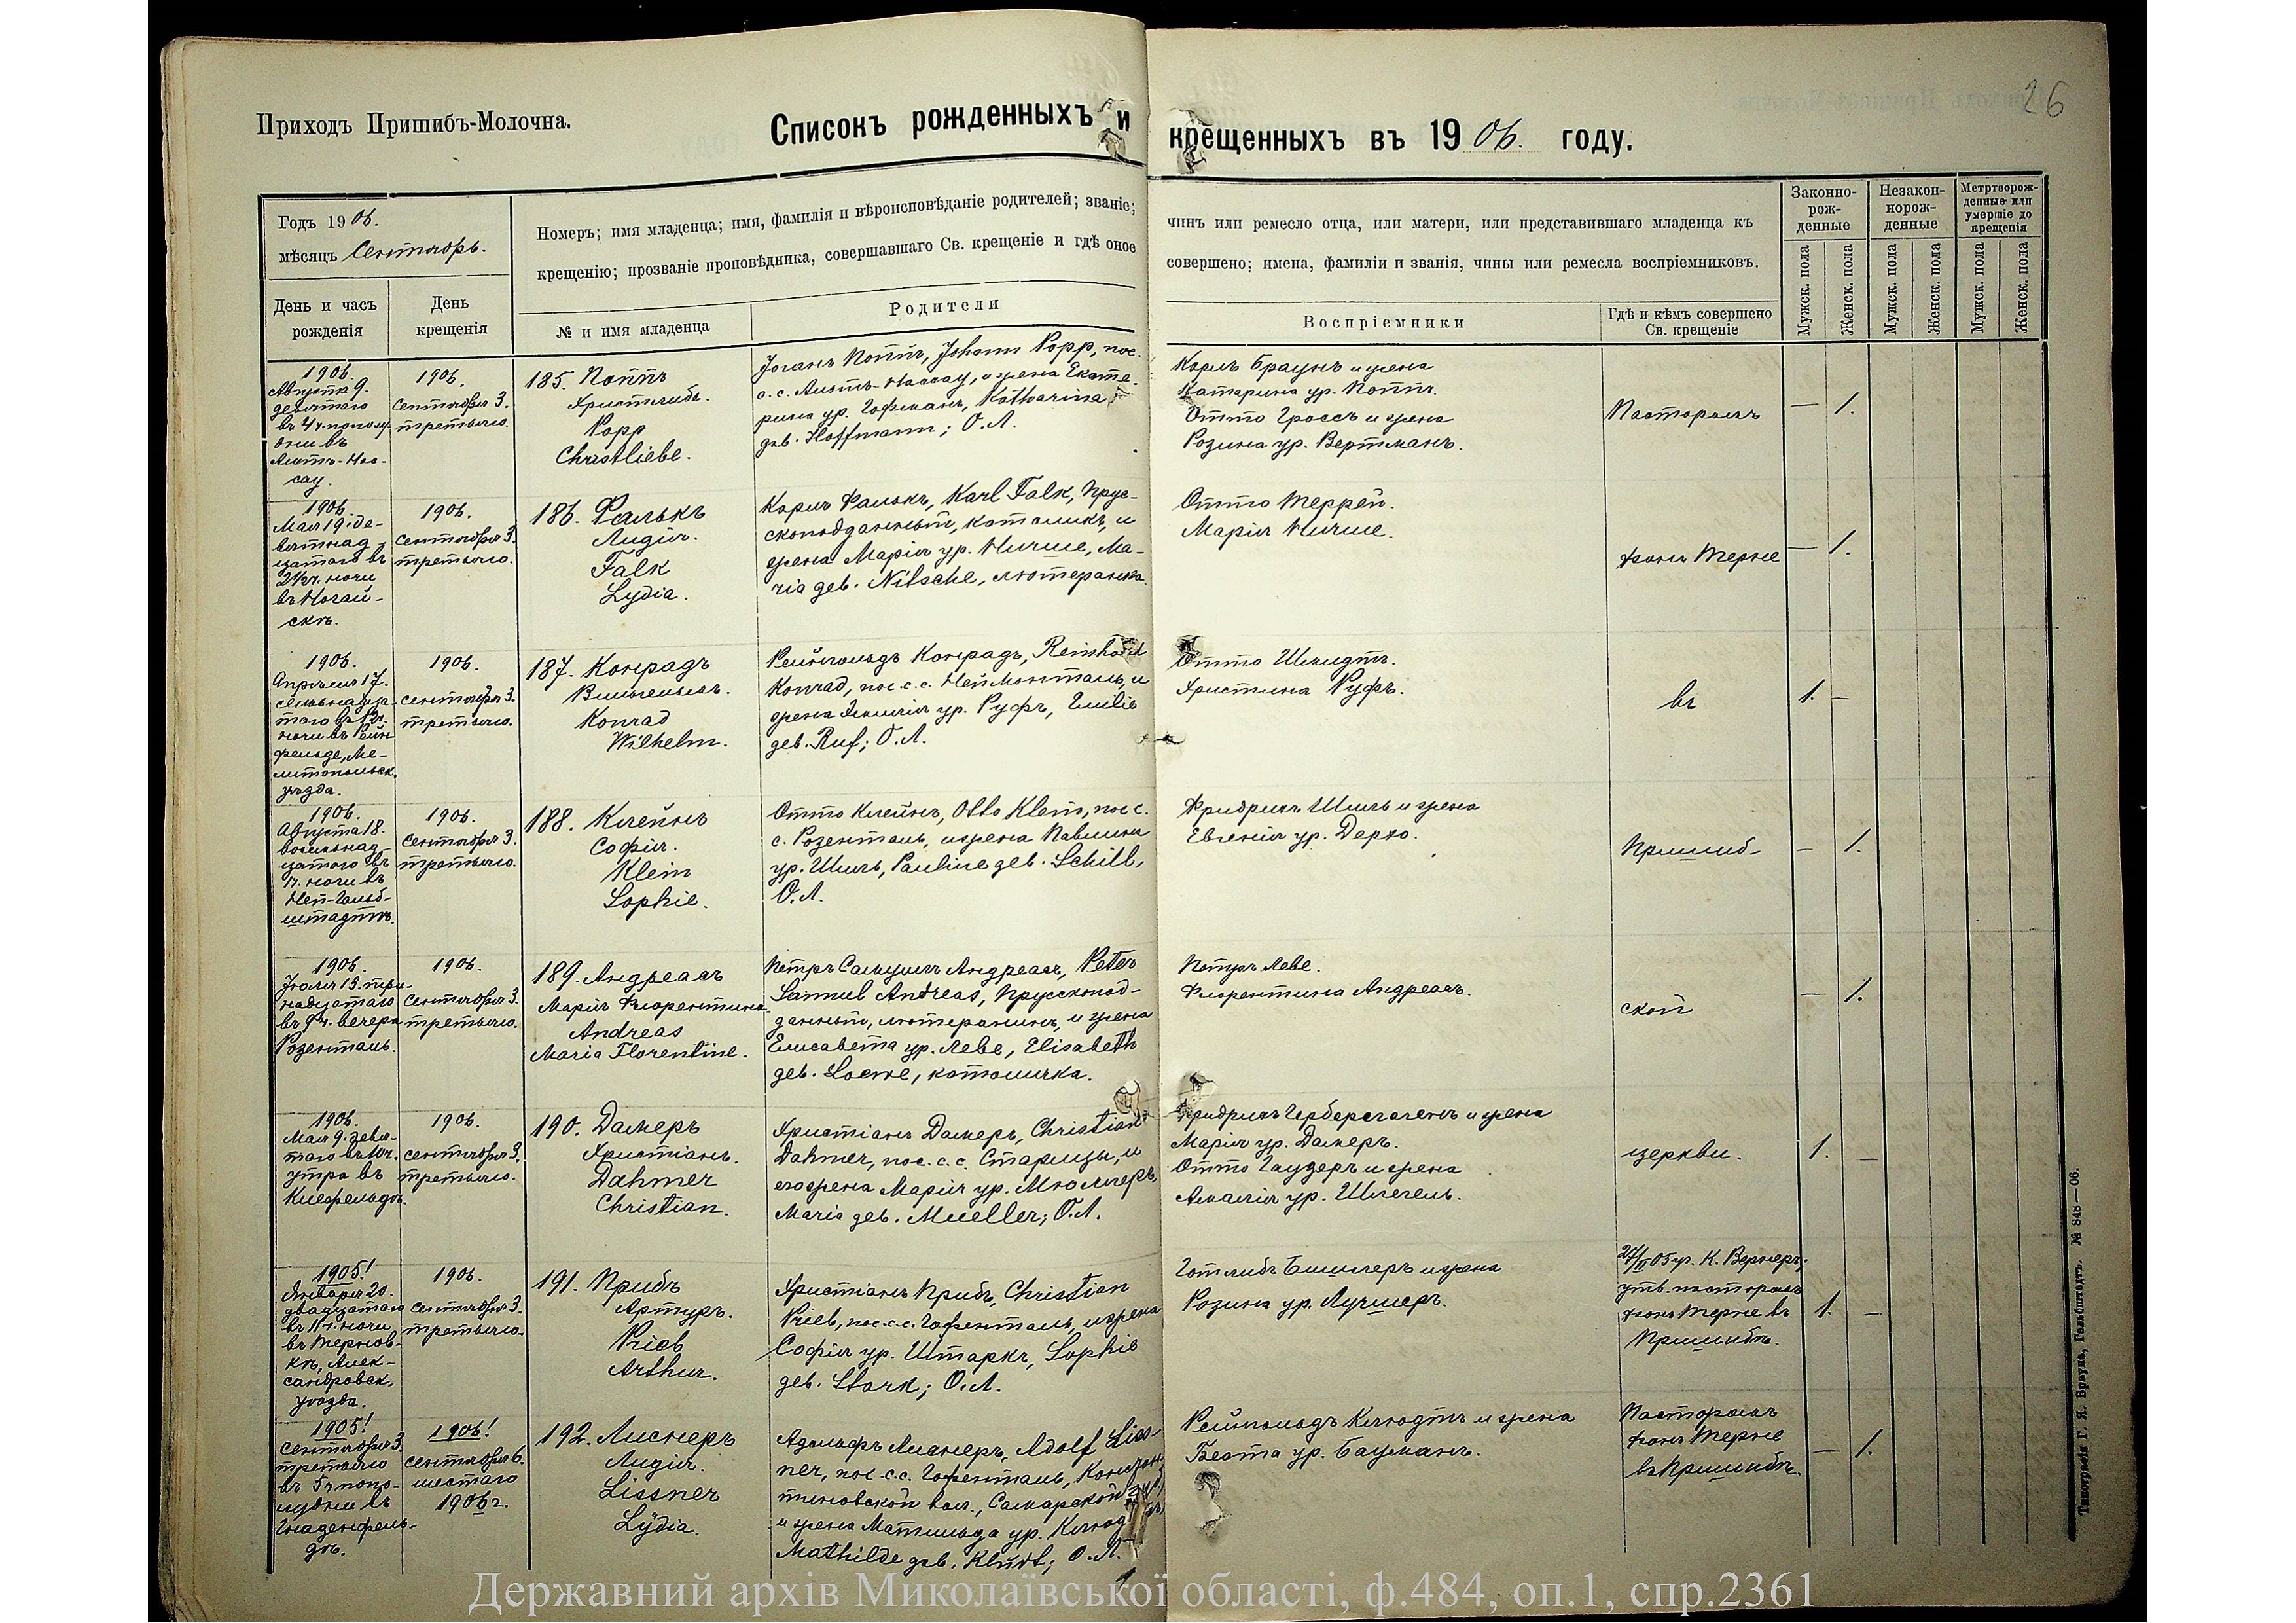 26
Приходъ Пришибъ-Молочна.
Списокъ рожденныхъ и крещенныхъ въ 1906. году.
Годъ 1906.
мѣсяцъ Сентябрь.
Номеръ; имя младенца; имя, фамилія и вѣроисповѣданіе родителей; званіе; чинъ или ремесло отца, или матери, или представившаго младенца къ
крещенію; прозваніе проповѣдника, совершавшаго Св. крещеніе и гдѣ оное совершено; имена, фамиліи и званія, чины или ремесла воспріемниковъ.
Законно-
рож-
денные
Незакон-
норож-
денные
Метртворож-
денные или
умершіе до
крещенія
День и часъ
рожденія
День
крещенія
№ и имя младенца
Родители
Воспріемники
Гдѣ и кѣмъ совершено
Св. крещеніе
Мужск. пола
Женск. пола
Мужск. пола
Женск. пола
Мужск. пола
Женск. пола
1906.
Августа 9.
девятаго
въ 4 ч. пополу-
дни въ
Альтъ-Нас-
сау.
1906.
Сентября 3.
третьяго.
185. Поппъ
Христлибъ.
Popp
Christliebe.
Іоганъ Поппъ, Johann Popp, пос.
с. с. Альтъ-Нассау, и жена Екате-
рина ур. Гофманъ, Katharina
geb. Hoffmann; О.Л.
Карлъ Браунъ и жена
Катарина ур. Поппъ.
Отто Гроссъ и жена
Розина ур. Вертманъ.
Пасторомъ
— 1.
1906.
Мая 19. де-
вятнад-
цатаго въ
2½ч. ночи
въ Ногай-
скѣ.
1906.
Сентября 3.
третьяго.
186. Фалькъ
Лидія.
Falk
Lydia.
Карлъ Фалькъ, Karl Falk, Прус-
скоподданный, католикъ, и
жена Марія ур. Ничше, Ma-
ria geb. Nitsche, лютеранка.
Отто Террей.
Марія Ничше.
фонъ Терне
— 1.
1906.
Апрѣля 17.
семьнадца-
таго въ 12ч.
ночи въ Рейн-
фельде, Ме-
литопольск.
уѣзда.
1906.
Сентября 3.
третьяго.
187. Конрадъ
Вильгельмъ.
Konrad
Wilhelm.
Рейнгольдъ Конрадъ, Reinhold
Konrad, пос. с. с. Ней-Монталь, и
жена Эмилія ур. Руфъ, Emilie
geb. Ruf; О.Л.
Отто Шмидтъ.
Христина Руфъ.
въ
1. —
1906.
Августа 18.
восемнад-
цатаго въ
1ч. ночи въ
Ней-Гальб-
штадтѣ.
1906.
Сентября 3.
третьяго.
188. Клейнъ
Софія.
Klein
Sophie.
Отто Клейнъ, Otto Klein, пос. с.
с. Розенталь, и жена Павлина
ур. Шилъ, Pauline geb. Schill,
О.Л.
Фридрихъ Шилъ и жена
Евгенія ур. Дерхо.
Пришиб-
— 1.
1906.
Іюля 13. три-
надцатаго
въ 9ч. вечера
Розенталь.
1906.
Сентября 3.
третьяго.
189. Андреасъ
Марія Флорентина.
Andreas
Maria Florentine.
Петръ Самуилъ Андреасъ, Peter
Samuel Andreas, Прусскопод-
данный, лютеранинъ, и жена
Елисавета ур. Леве, Elisabeth
geb. Loewe, католичка.
Петръ Леве.
Флорентина Андреасъ.
ской
— 1.
1906.
Мая 9. девя-
таго въ 10ч.
утра въ
Кисфельдѣ.
1906.
Сентября 3.
третьяго.
190. Дамеръ
Христіанъ.
Dahmer
Christian.
Христіанъ Дамеръ, Christian
Dahmer, пос. с. с. Старицы, и
его жена Марія ур. Мюллеръ,
Maria geb. Mueller; О.Л.
Марія ур. Дамеръ.
Отто Гаузеръ и жена
Амалія ур. Шлегель.
церкви.
1. —
1905!
Января 20.
двадцатаго
въ 11ч. ночи
въ Тернов-
кѣ, Алек-
сандровск.
уѣзда.
1906.
Сентября 3.
третьяго.
191. Прибъ
Артуръ.
Prieb
Arthur.
Христіанъ Прибъ, Christian
Prieb, пос. с. с. Гофенталь, и жена
Софія ур. Штаркъ, Sophie
geb. Stark; О.Л.
Готлибъ Бишлеръ и жена
Розина ур. Лучшеръ.
К. Вернеръ;
утв. пасторомъ
фонъ Терне въ
Пришибѣ.
1. —
1905!
Сентября 3.
третьяго
въ 5ч попо-
лудни въ
Гнаденфель-
дѣ.
1906!
Сентября 6.
шестаго
1906г.
192. Лиснеръ
Лидія.
Lissner
Lydia.
Адольфъ Лиснеръ, Adolf Liss-
ner, пос. с. с. Гофенталь, Констан-
тиновской вол., Самарской губ.,
и жена Матильда ур. Клюдтъ,
Mathilde geb. Klüdt; О.Л.
Рейнгольдъ Клюдтъ и жена
Беата ур. Бауманъ.
Пасторомъ
фонъ Терне
въ Пришибѣ.
— 1.
Типографія Г. Я. Брауна, Гальбштадтъ. № 848—06.
Державний архів Миколаївської області, ф.484, оп.1, спр.2361